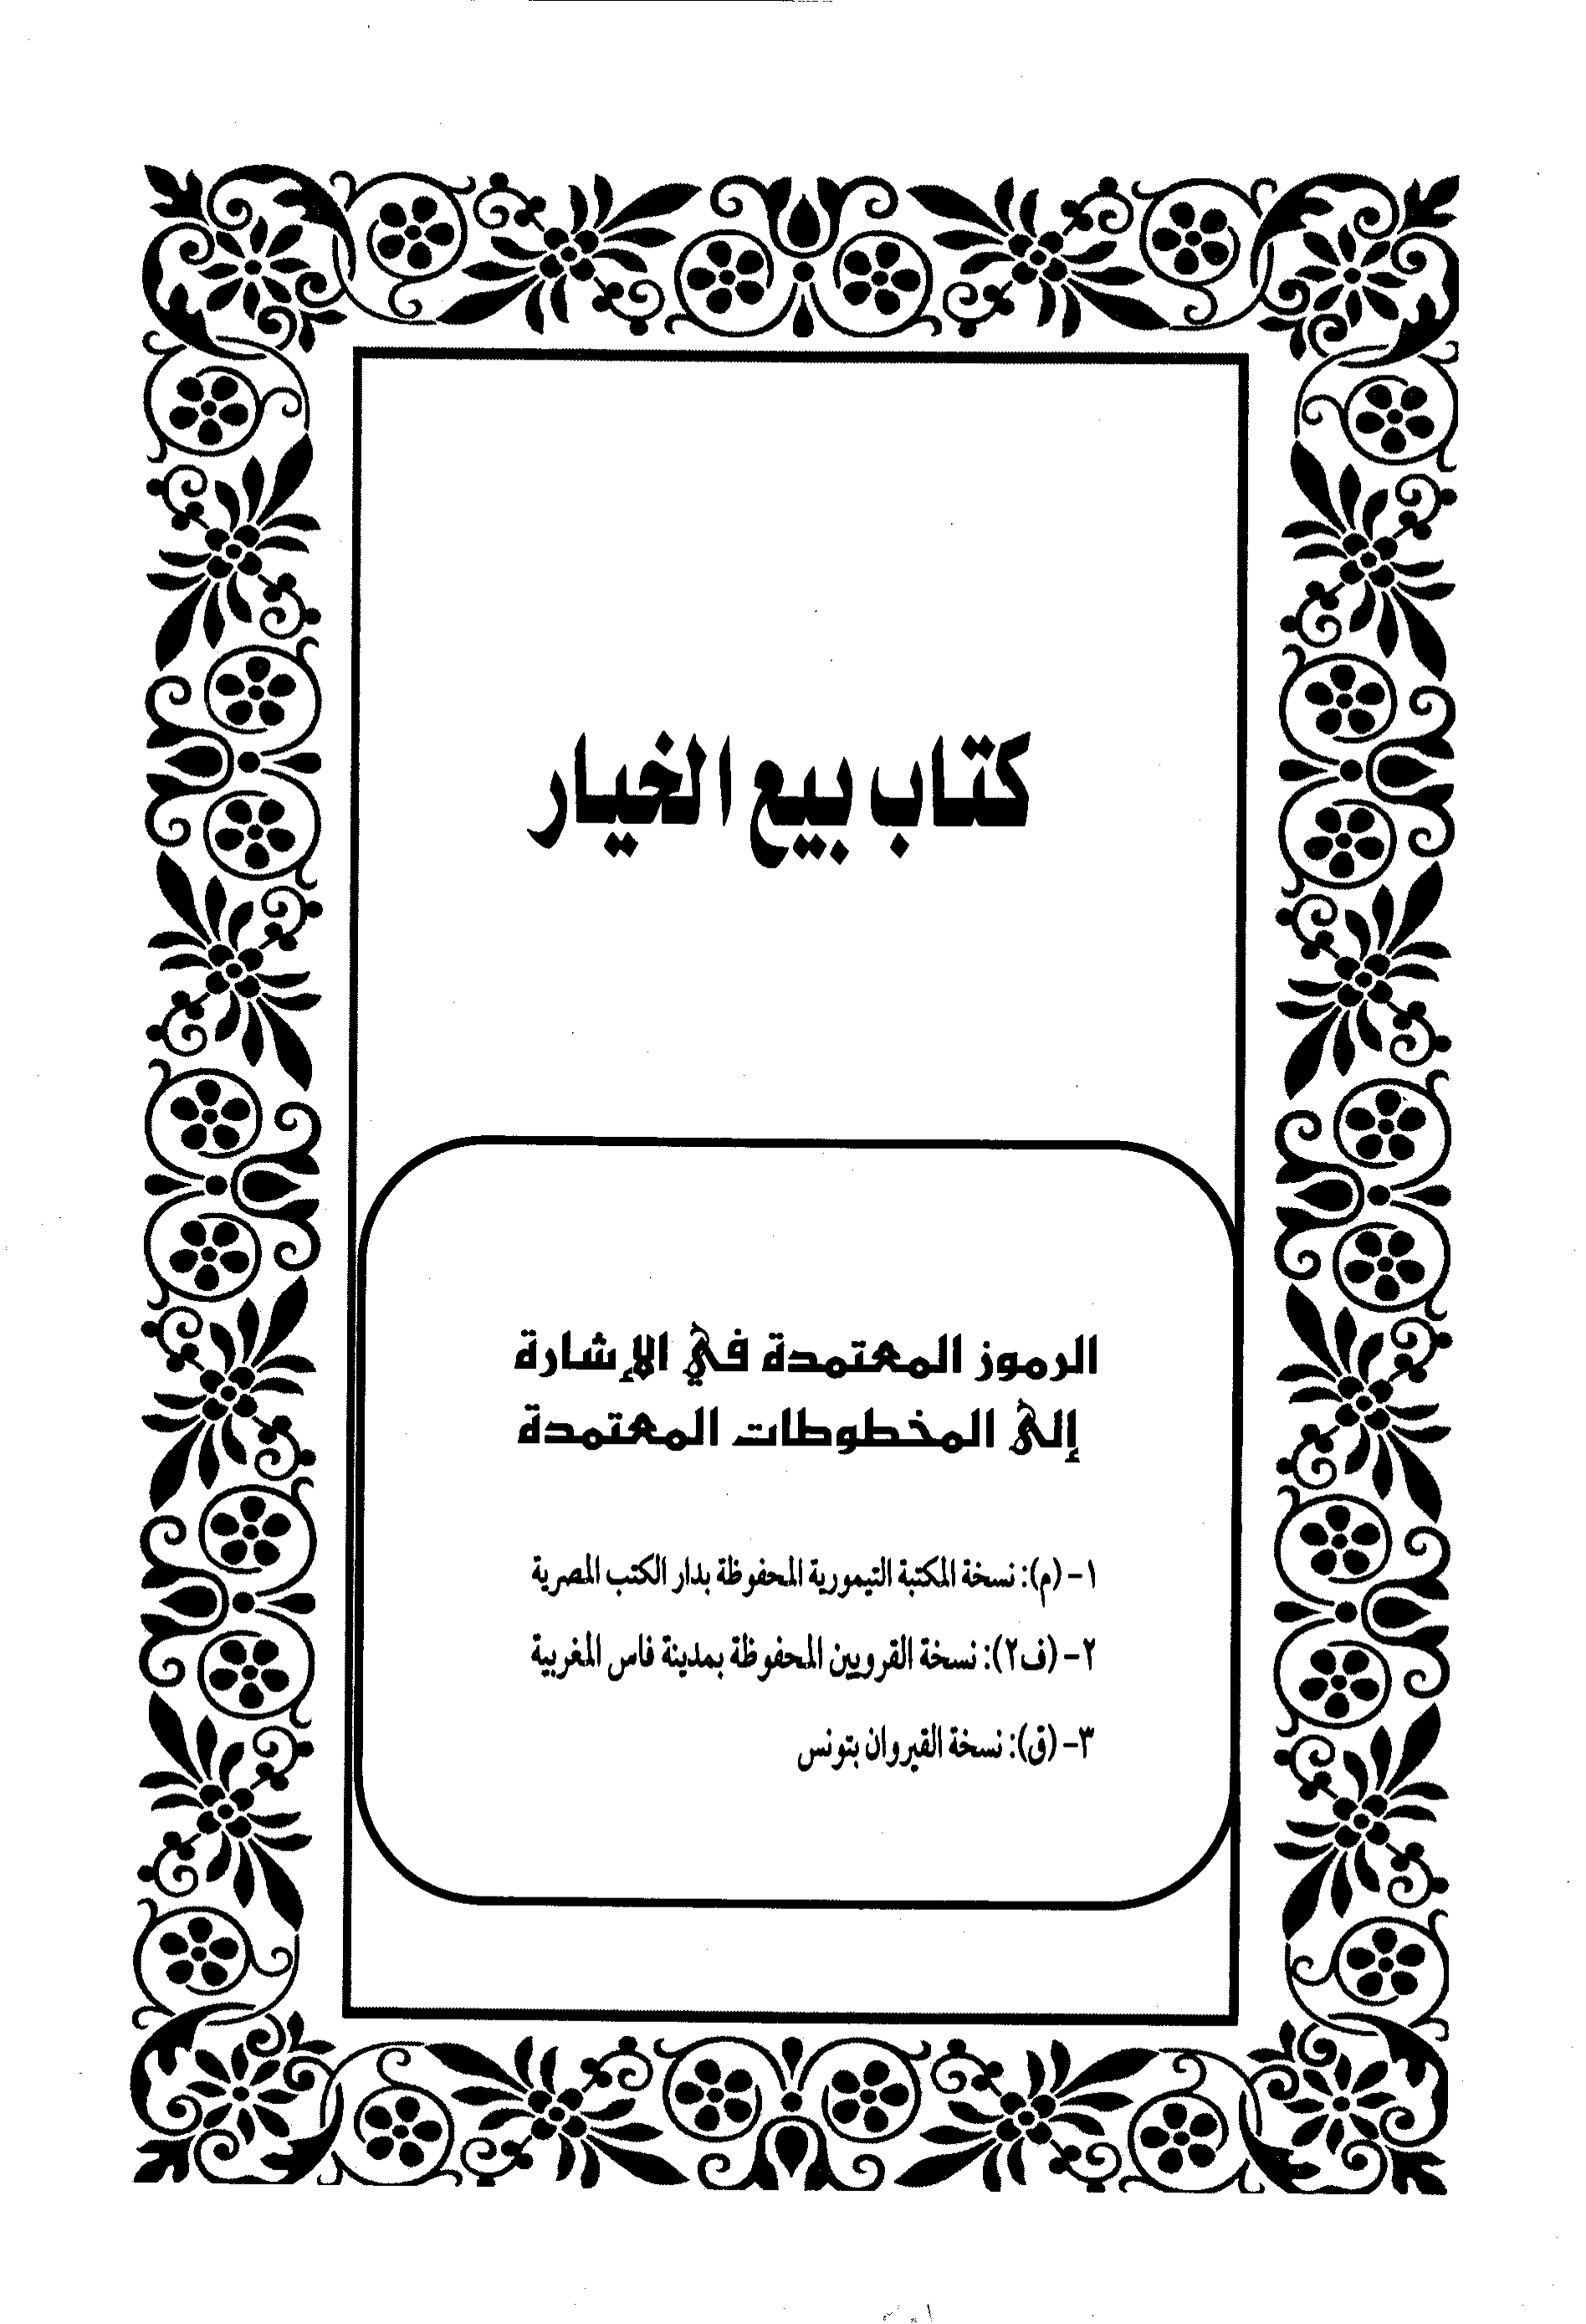 كتاب بيع الخيار
الرموز المعتمدة في الإشارة
إلى المخطوطات المعتمدة
١- (م): نسخة المكتبة التيمورية المحفوظة بدار الكتب المصرية
٢- (ف٢): نسخة القرويين المحفوظة بمدينة فاس المغربية
٣- (ق): نسخة القيروان بتونس